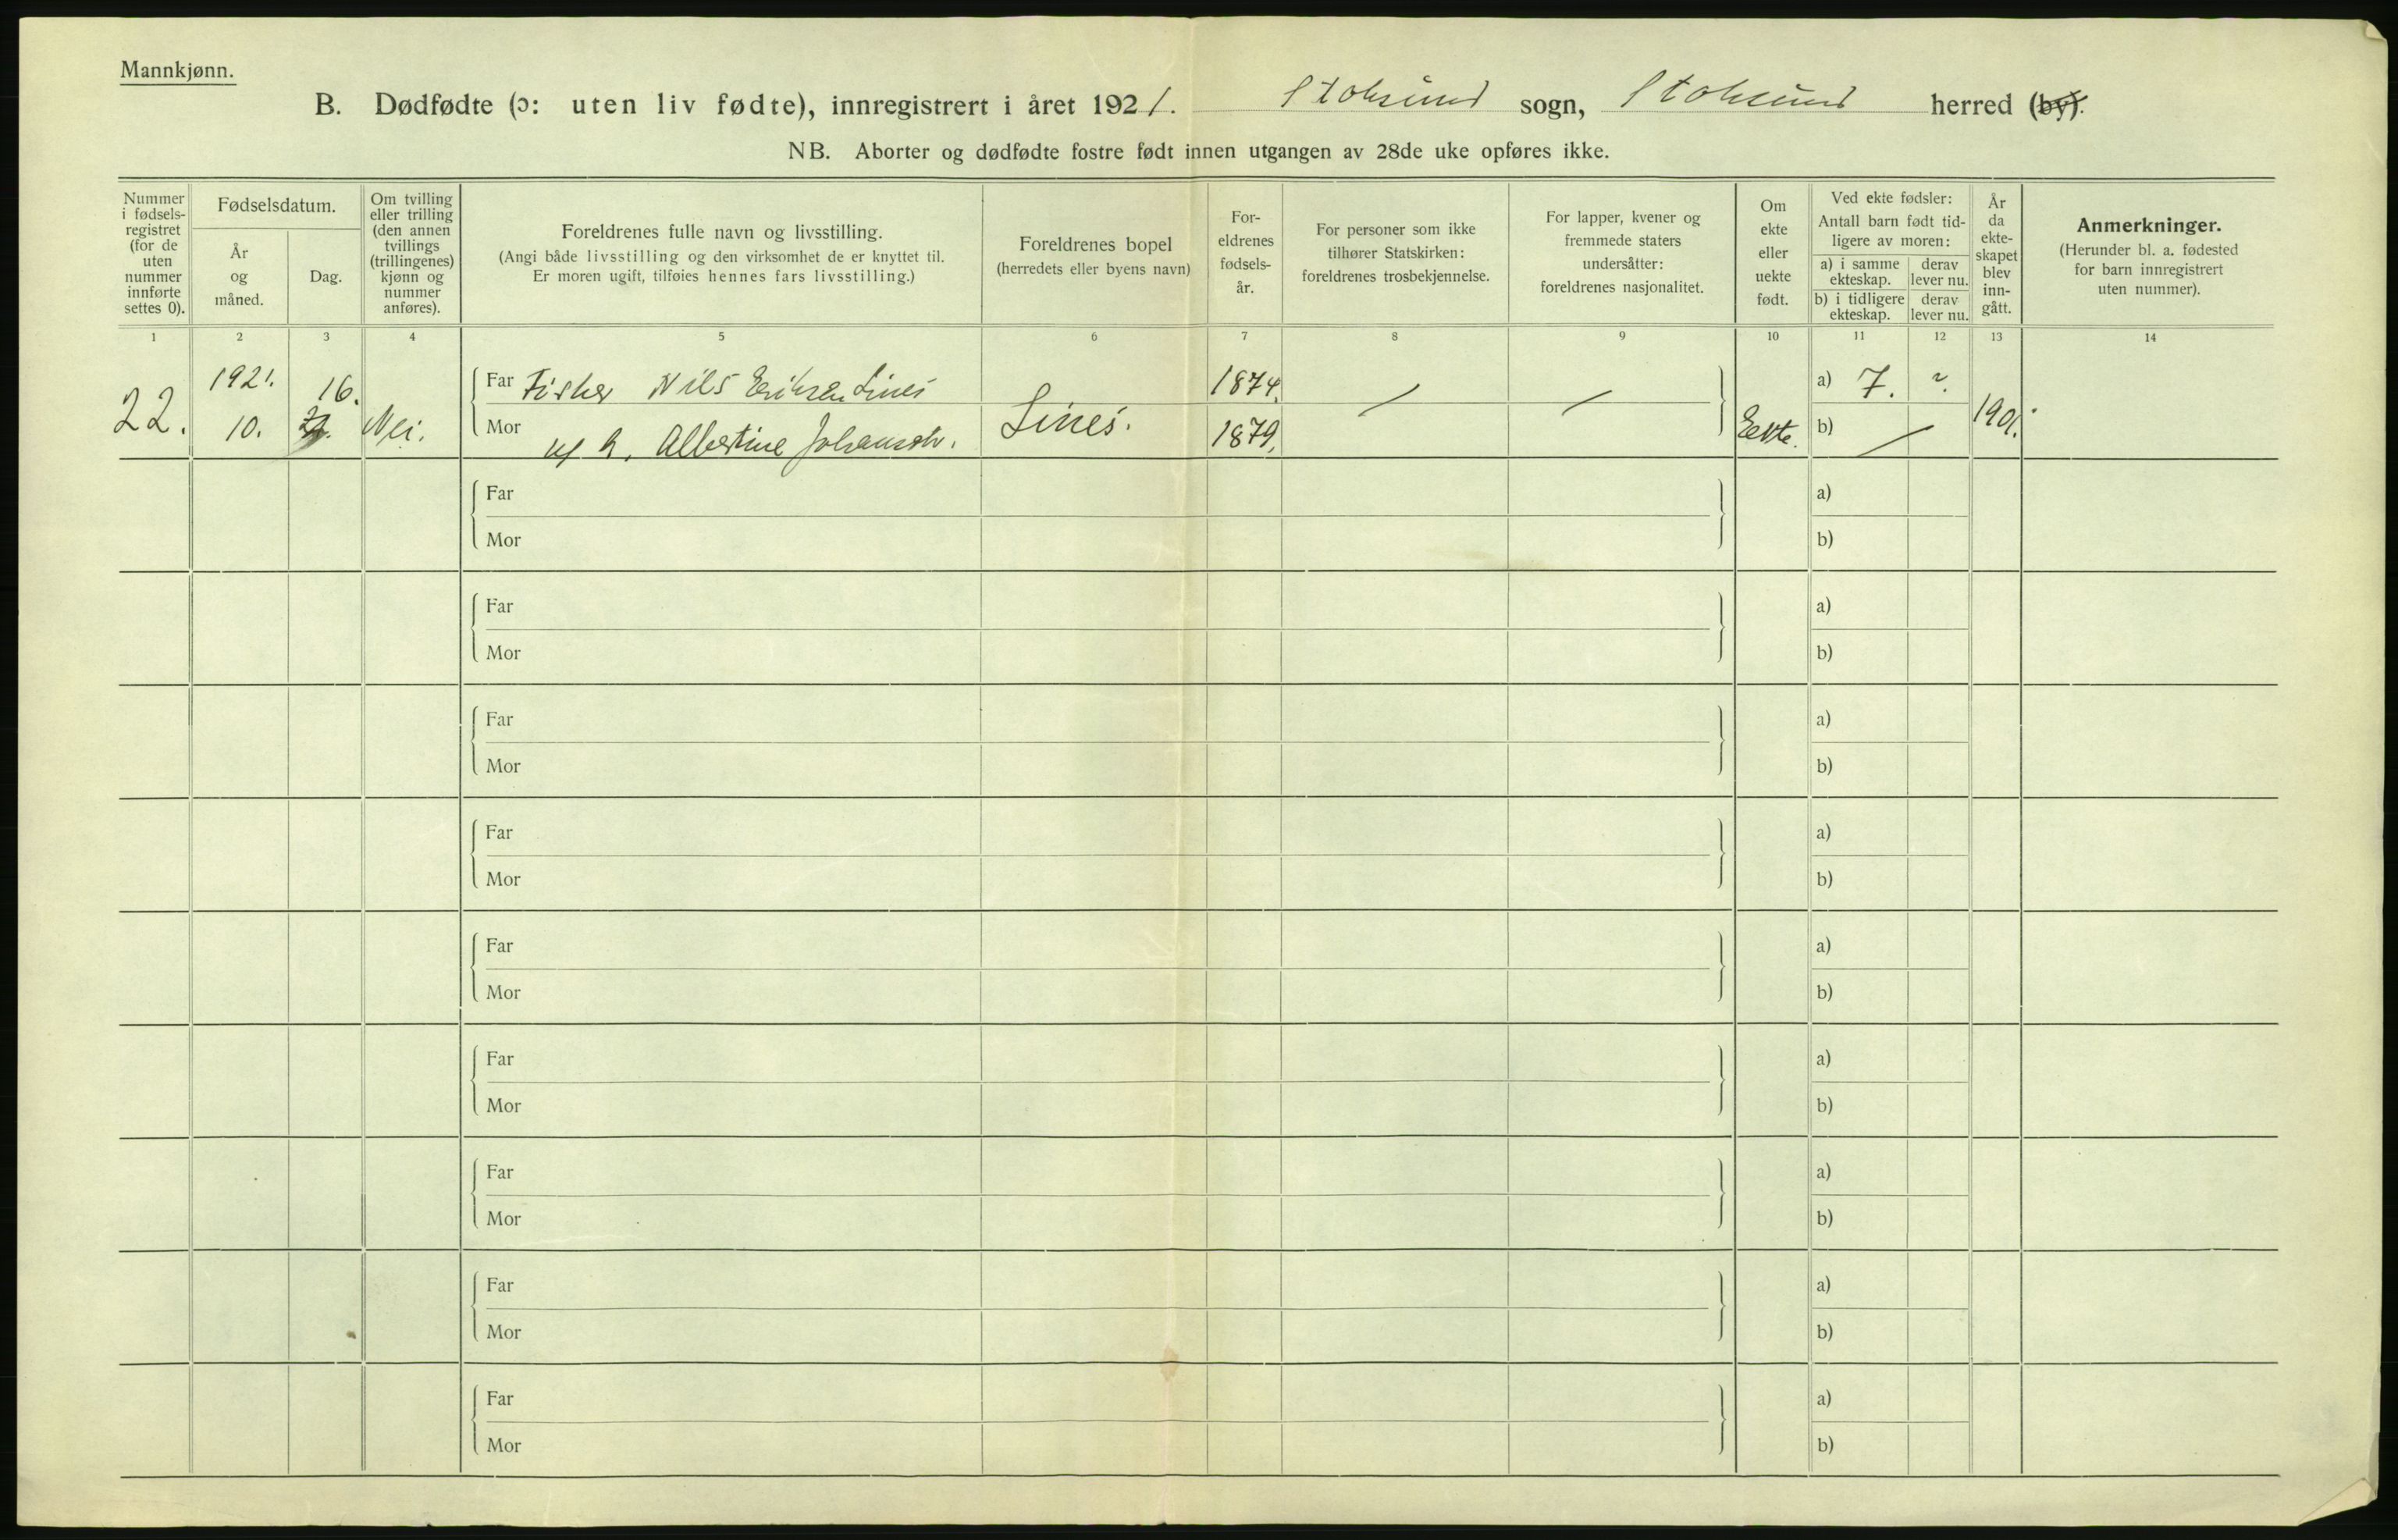 Mannkjønn.
B. Dødfødte (ɔ: uten liv fødte), innregistrert i året 1921. Stoksund sogn, Stoksund herred (by).
NB. Aborter og dødfødte fostre født innen utgangen av 28de uke opføres ikke.
Nummer i fødsels-registret (for de uten nummer innførte settes 0).
Fødselsdatum.
År og måned.
Dag.
Om tvilling eller trilling (den annen tvillings (trillingenes) kjønn og nummer anføres).
Foreldrenes fulle navn og livsstilling.
(Angi både livsstilling og den virksomhet de er knyttet til.
Er moren ugift, tilføies hennes fars livsstilling.)
Foreldrenes bopel
(herredets eller byens navn)
For-eldrenes fødsels-år.
For personer som ikke tilhører Statskirken: foreldrenes trosbekjennelse.
For lapper, kvener og fremmede staters undersåtter: foreldrenes nasjonalitet.
Om ekte eller uekte født.
Ved ekte fødsler:
Antall barn født tid-ligere av moren:
a) i samme ekteskap.
derav lever nu.
b) i tidligere ekteskap.
derav lever nu.
År da ekte-skapet blev inn-gått.
Anmerkninger.
(Herunder bl. a. fødested for barn innregistrert uten nummer).
1 2 3 4 5 6 7 8 9 10 11 12 13 14
22. 1921. 10. 16. Nei.
Far Fisker Nils Eriksen Lines
Mor og h. Albertine Johansdtr.
Lines. 1874. 1879. / / Eekte. a) 7. 2. b) / 1901.
Far a)
Mor b)
Far a)
Mor b)
Far a)
Mor b)
Far a)
Mor b)
Far a)
Mor b)
Far a)
Mor b)
Far a)
Mor b)
Far a)
Mor b)
Far a)
Mor b)